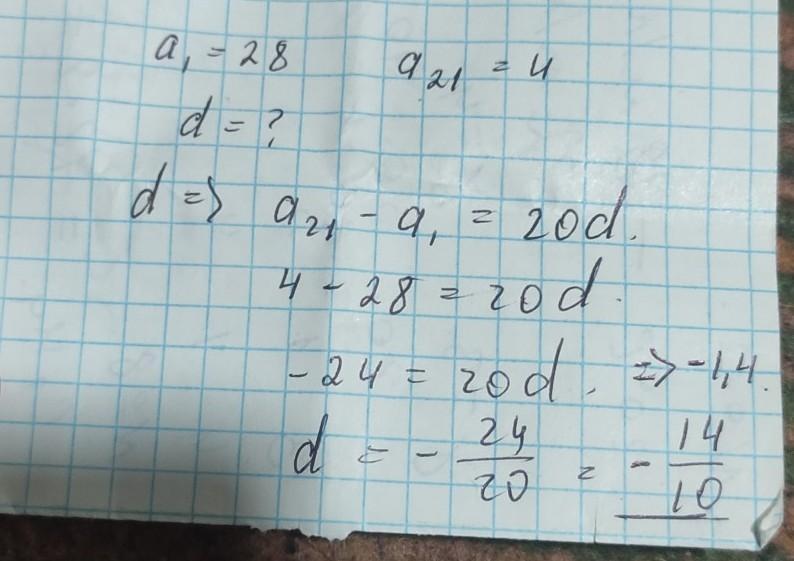 a₁ = 28 a₂₁ = 4
d = ?
d => a₂₁ - a₁ = 20d.
4 - 28 = 20d.
-24 = 20d. => -1,4.
d = - 24/20 = - 14/10